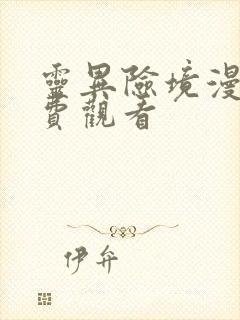 靈異險境漫
費觀看
伊弁